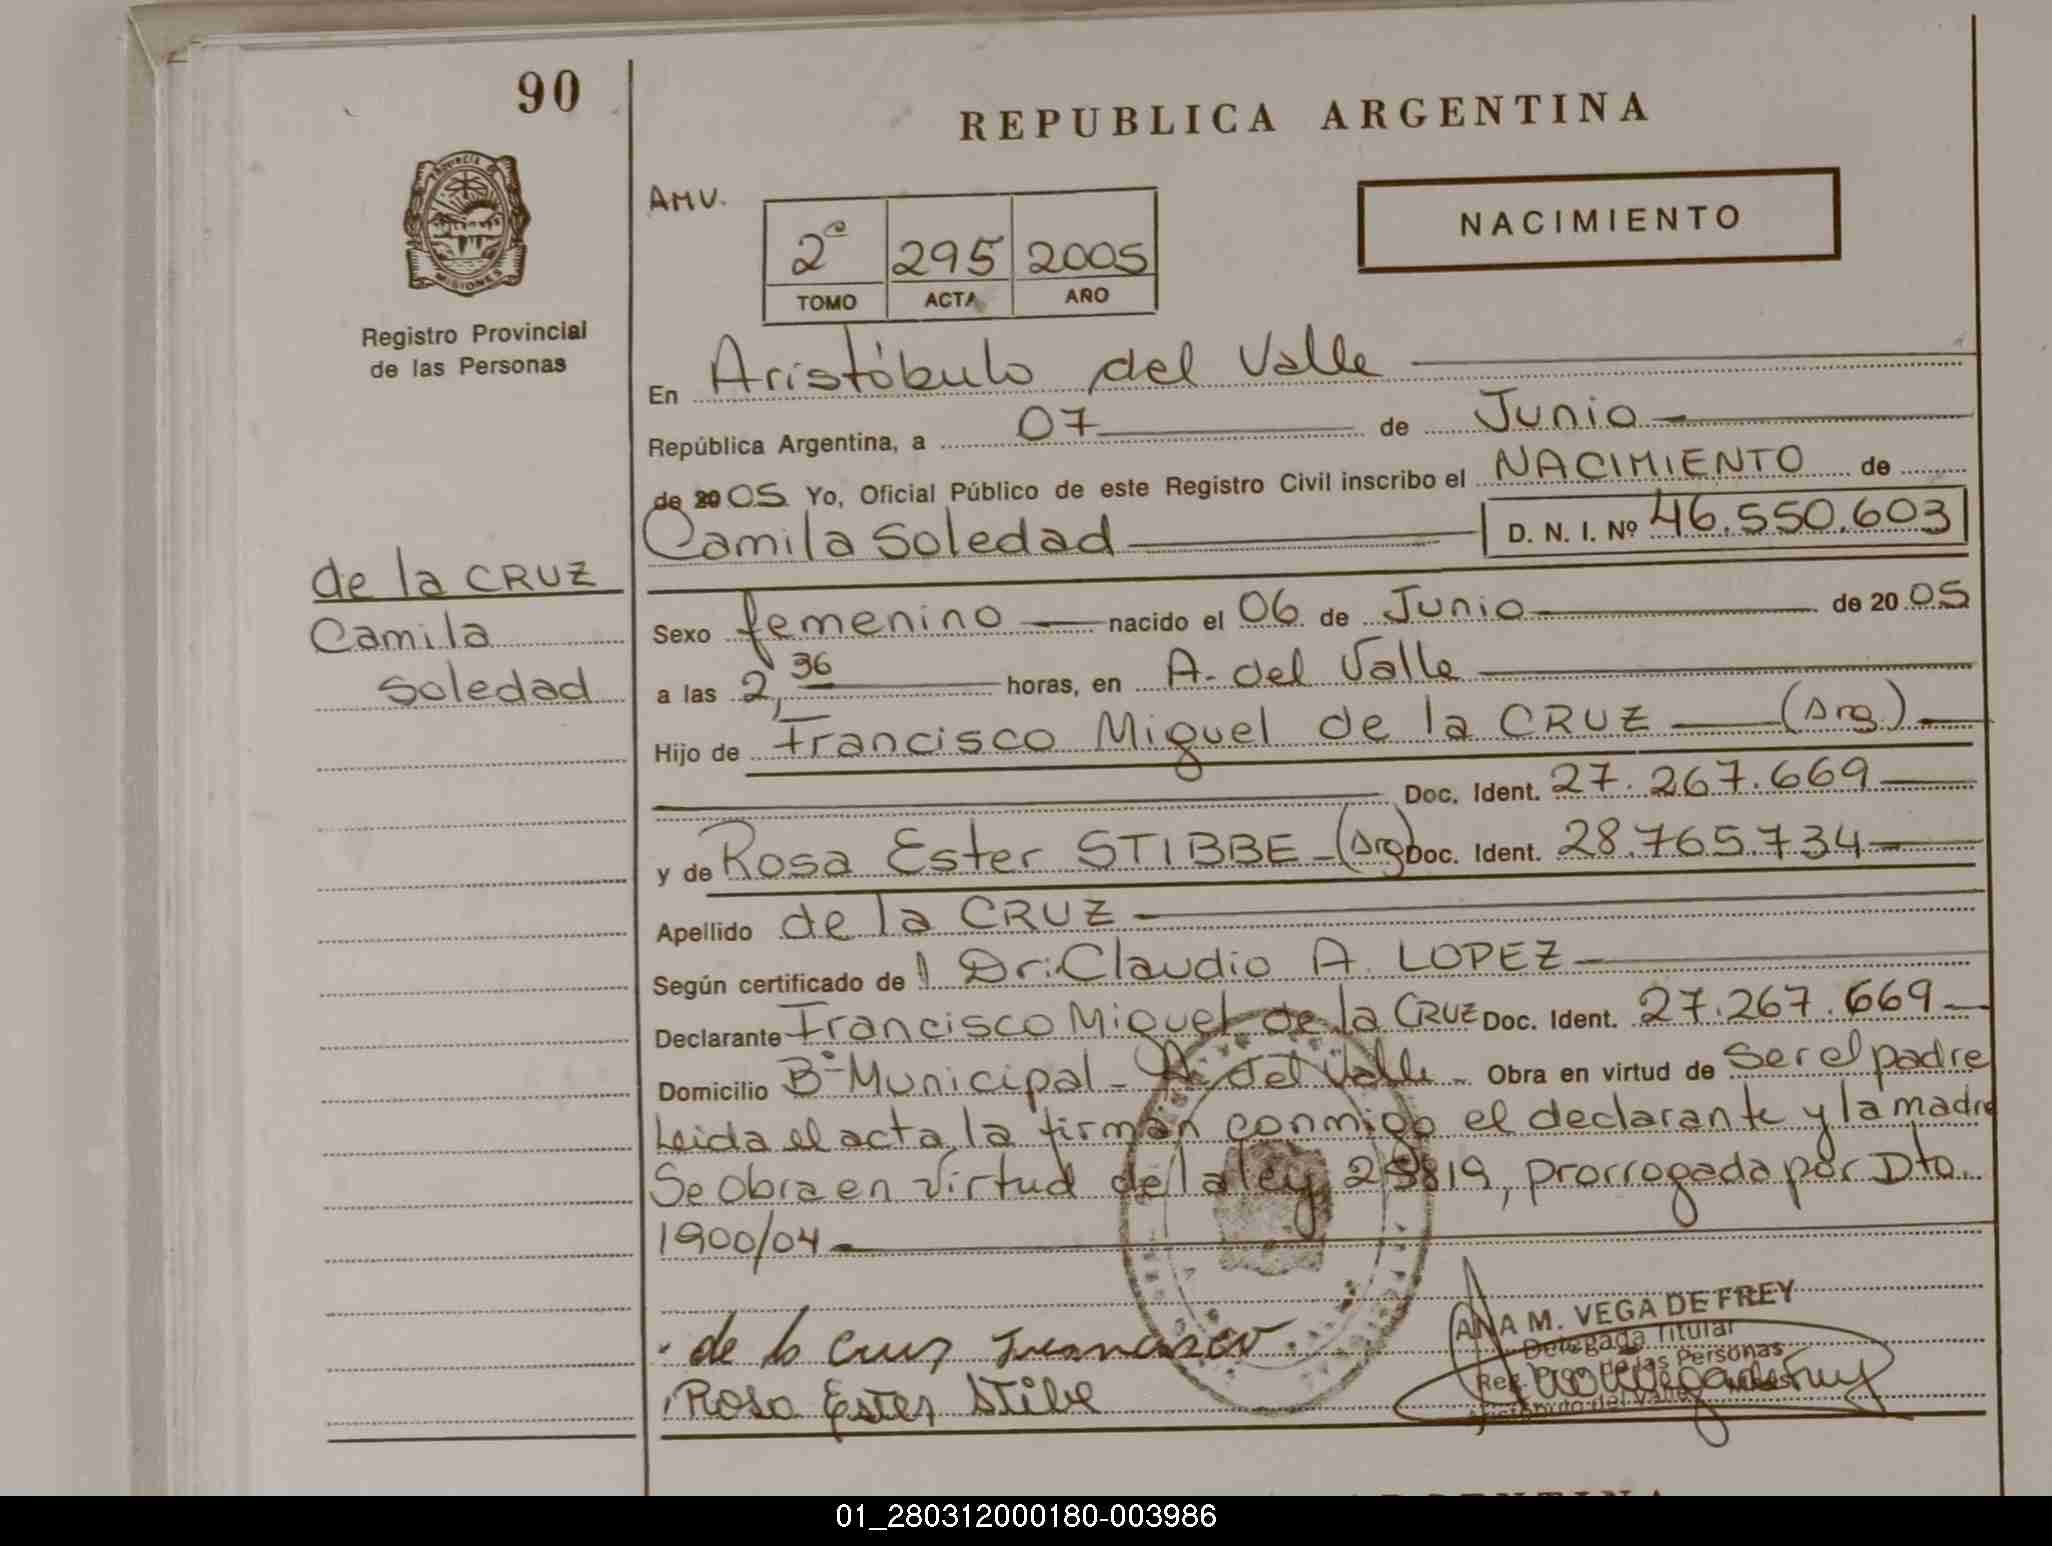 90
REPUBLICA ARGENTINA
PROVINCIA
MISIONES
Registro Provincial
de las Personas
AMV.
2º 295 2005
TOMO ACTA AÑO
NACIMIENTO
En Aristóbulo del Valle
República Argentina, a 07 de Junio
de 2005 Yo, Oficial Público de este Registro Civil inscribo el NACIMIENTO de
Camila Soledad D. N. I. Nº 46.550.603
de la CRUZ
Camila
Soledad
Sexo femenino nacido el 06 de Junio de 2005
a las 2,36 horas, en A. del Valle
Hijo de Francisco Miguel de la CRUZ (Arg.)
Doc. Ident. 27.267.669
y de Rosa Ester STIBBE - (Arg) Doc. Ident. 28.765.734
Apellido de la CRUZ
Según certificado de Dr: Claudio A. LOPEZ
Declarante Francisco Miguel de la CRUZ Doc. Ident. 27.267.669
Domicilio Bº Municipal - A. del Valle - Obra en virtud de Ser el padre
Leida el acta, la firman conmigo el declarante y la madre
Se obra en virtud de la ley 25819, prorrogada por Dto.
1900/04
de la Cruz Francisco
Rosa Ester Stibe
ANA M. VEGA DE FREY
Delegada Titular
Reg. de las Personas
Aristóbulo del Valle
01_280312000180-003986